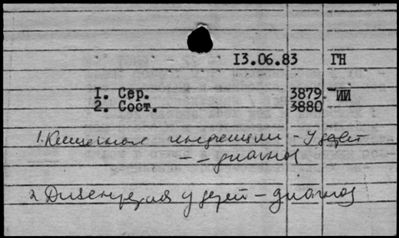 13.06.83 ГН
1. Сер. 3879 ИИ
2. Сост. 3880
1. Кишечные инфекции - у детей
- - диагноз
2. Дизентерия у детей - диагноз